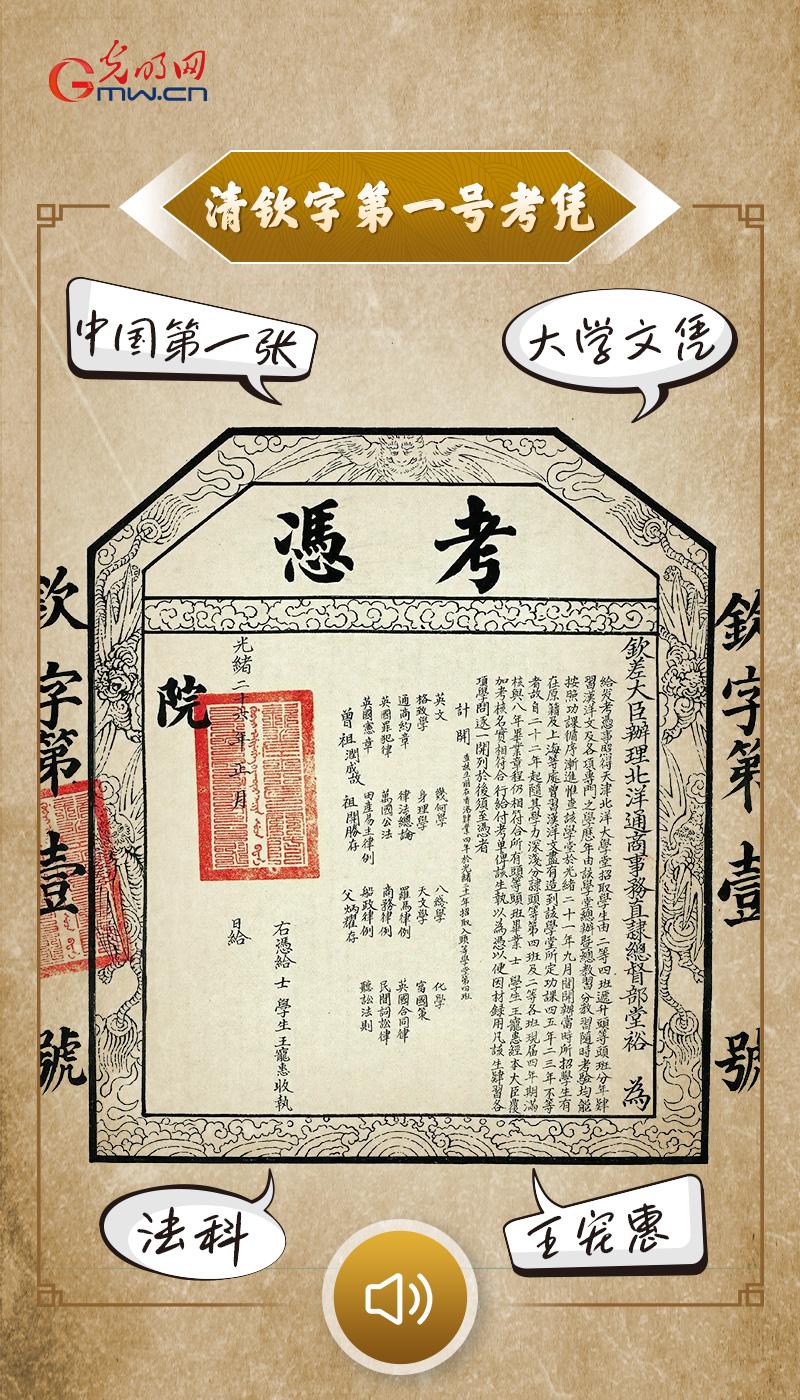 光明网
GMW.CN
清钦字第一号考凭
中国第一张
大学文凭
考憑
欽字第壹號
欽差大臣辦理北洋通商事務直隸總督部堂裕 為
給發考憑事照得天津北洋大學堂招取學生由二等四班遞升頭等頭班分年肄
習漢洋文及各項專門之學歷八年由該學堂總辦暨總教習分教習隨時考驗均能
按照功課循序漸進惟查該學堂於光緒二十一年九月間開辦當時所招學生有
在原籍及上海等處曾習漢洋文盡有造到該學堂所定功課四五年二三年不等
者故自二十二年起隨其學力深淺分隸頭等第四班及二等各班現届四年期滿
核與八年畢業章程仍相符合所有頭等頭班畢業士 學生王寵惠經本大臣覆
加考核名實相符合行給付考單傳該生執以為憑以便因材録用凡該生肄習各
項學問逐一開列於後須至憑者
計開
英文 幾何學 八綫學 化學
格致學 身理學 天文學 富國策
通商約章 律法總論 羅馬律例 英國合同律
英國罪犯律 萬國公法 商務律例 民間詞訟律
英國憲章 田產易主律例 船政律例 聽訟法則
曾祖潤成故 祖開勝存 父炳耀存
右憑給士 學生王寵惠收執
光緒二十六年正月 日給
院
欽字第壹號
法科
王宠惠